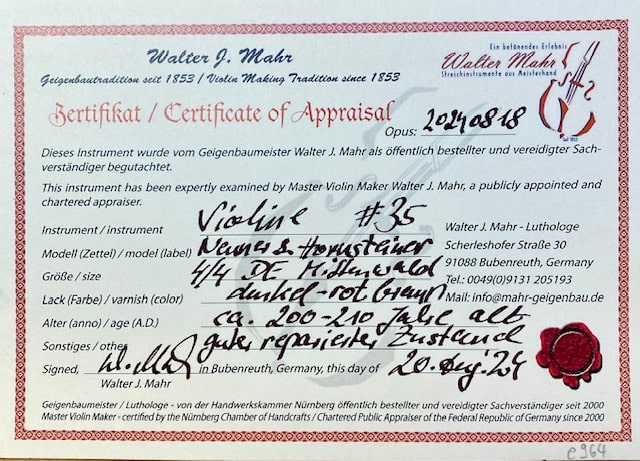 Walter J. Mahr
Geigenbautradition seit 1853 / Violin Making Tradition since 1853
Ein befönendes Erlebnis
Walter Mahr
Streichinstrumente aus Meisterhand
Zertifikat / Certificate of Appraisal
Opus: 20240818
Dieses Instrument wurde vom Geigenbaumeister Walter J. Mahr als öffentlich bestellter und vereidigter Sach-
verständiger begutachtet.
This instrument has been expertly examined by Master Violin Maker Walter J. Mahr, a publicly appointed and
chartered appraiser.
Instrument / instrument Violine #35
Modell (Zettel) / model (label) Neuner & Hornsteiner
Größe / size 4/4 DE Mittenwald
Lack (Farbe) / varnish (color) dunkel-rotbraun
Alter (anno) / age (A.D.) ca. 200-210 Jahre alt
Sonstiges / other guter reparierter Zustand
Walter J. Mahr - Luthologe
Scherleshofer Straße 30
91088 Bubenreuth, Germany
Tel.: 0049(0)9131 205193
Mail: info@mahr-geigenbau.de
Signed, W. Mahr in Bubenreuth, Germany, this day of 20. Aug. 24
Walter J. Mahr
Geigenbaumeister / Luthologe - von der Handwerkskammer Nürnberg öffentlich bestellter und vereidigter Sachverständiger seit 2000
Master Violin Maker - certified by the Nürnberg Chamber of Handcrafts / Chartered Public Appraiser of the Federal Republic of Germany since 2000
e964